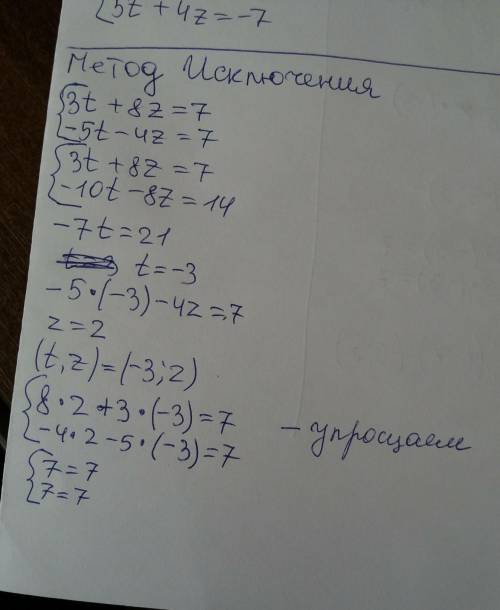 {5t + 4z = -7
Метод Исключения
{3t + 8z = 7
-5t - 4z = 7
{3t + 8z = 7
-10t - 8z = 14
-7t = 21
t = -3
-5 • (-3) - 4z = 7
z = 2
(t, z) = (-3; 2)
{8 • 2 + 3 • (-3) = 7
-4 • 2 - 5 • (-3) = 7 - упрощаем
{7 = 7
7 = 7